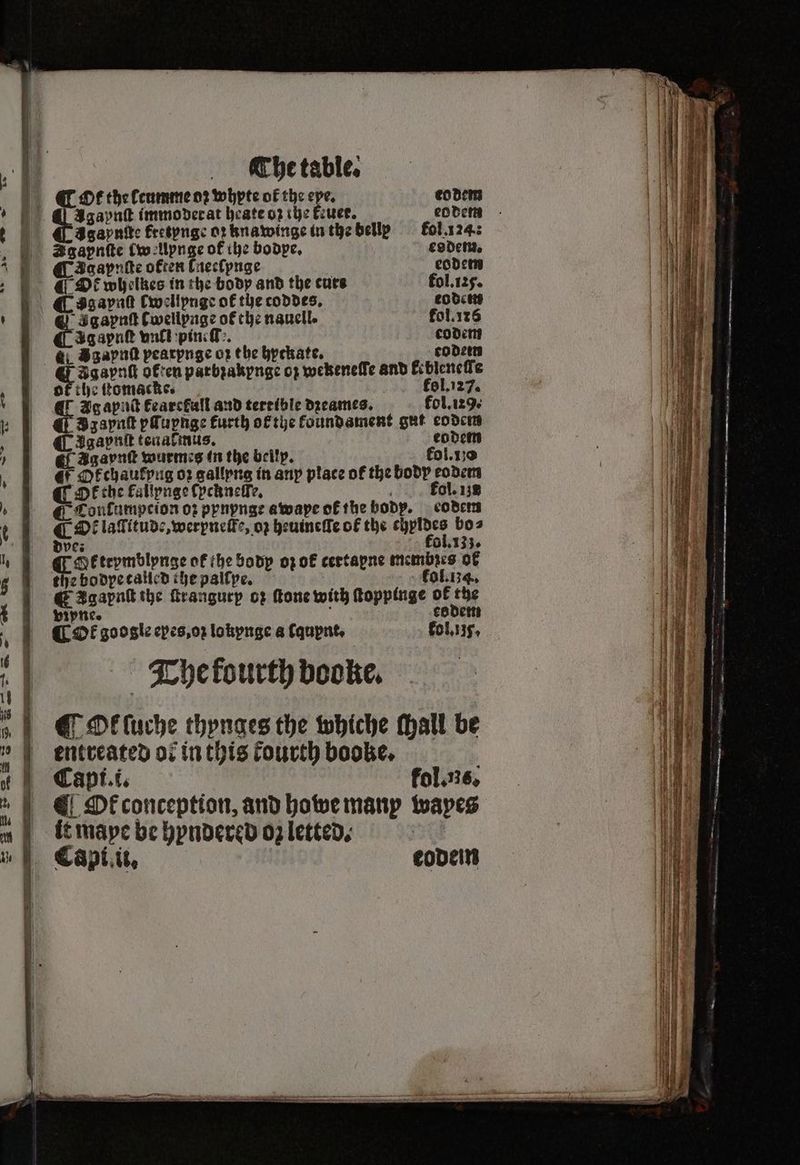 The table.
¶ Of the scumme oꝛ whyte of the eye. eodem
¶ Agaynst immoderat heate oꝛ the feuer. eodem
¶ Agaynste fretynge oꝛ knawinge in the belly fol.124.
Agaynste swellynge of the bodye. eodem.
¶ Agaynste often sneesynge eodem
¶ Of whelkes in the body and the cure fol.125.
¶ Agaynst swellynge of the coddes. eodem
¶ Agaynst swellynge of the nauell. fol.126
¶ Agaynst eodem
¶ Agaynst yearynge oꝛ the hyckate. eodem
¶ Agaynst often parbꝛakynge oꝛ wekenesse and feblenesse
of the stomacke. fol.127.
¶ Agaynst fearefull and terrible dꝛeames. fol.129.
¶ Agaynst yssuynge furth of the foundament gut eodem
¶ Agaynst tenasmus. eodem
¶ Agaynst wurmes in the belly. fol.130
¶ Of chaufyng oꝛ gallyng in any place of the body eodem
¶ Of the fallynge sycknesse. fol.132
¶ Consumpcion oꝛ pynynge awaye of the body. eodem
¶ Of lassitude, werynesse, oꝛ heuinesse of the chyldes bo⸗
dye: fol.133.
¶ Of trymblynge of the body oꝛ of certayne membꝛes of
the bodye called the palsye. fol.134.
¶ Agaynst the strangury oꝛ stone with stoppinge of the
vryne. eodem
¶ Of google eyes, oꝛ lokynge a squynt. fol.135.
The fourth booke.
¶ Of suche thynges the whiche shall be
entreated of in this fourth booke.
Capi.i. fol.136.
¶ Of conception, and howe many wayes
it maye be hyndered oꝛ letted.
Capi.ii. eodem